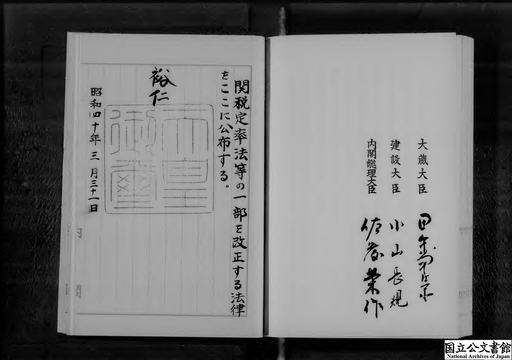 大蔵大臣 田中角栄
建設大臣 小山長規
内閣総理大臣 佐藤栄作
関税定率法等の一部を改正する法律
をここに公布する。
裕仁
天皇
御璽
昭和四十年三月三十一日
国立公文書館
National Archives of Japan